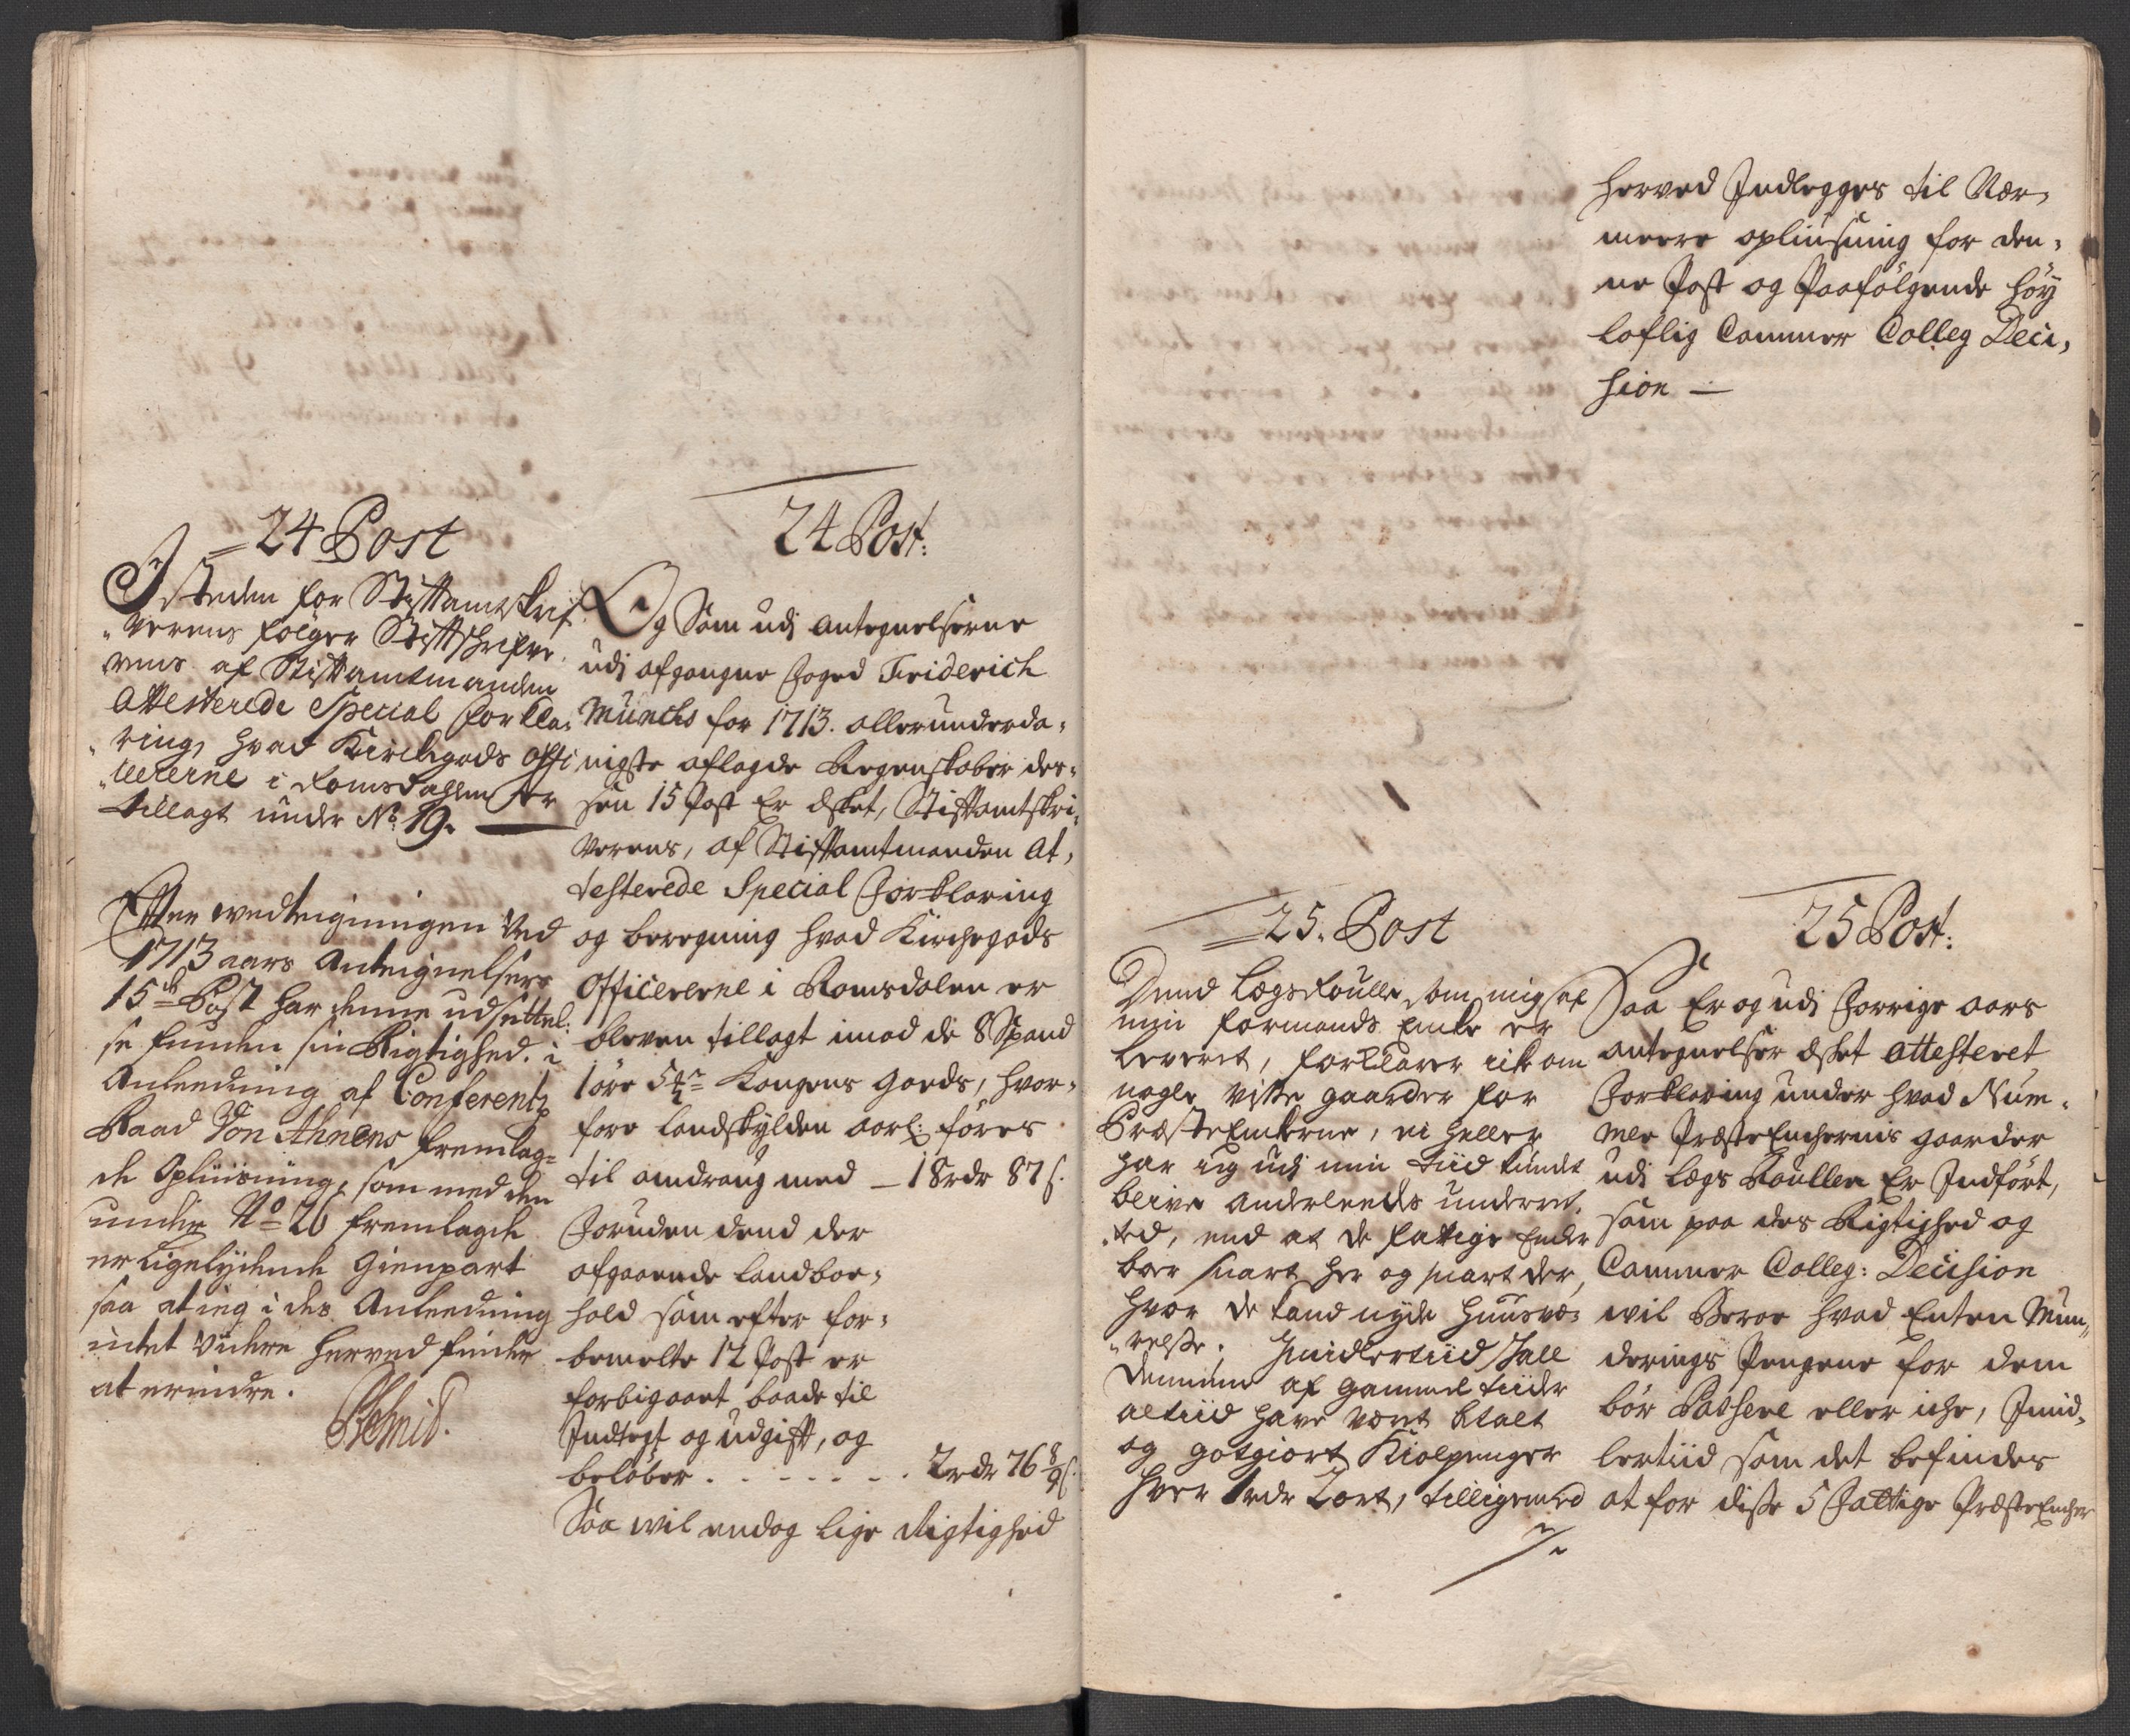 =24 Post
I Steden for Stiftamtskrif
"verens følger Stiftskrifve
rens af Stiftamtmanden
Attesterede Special Forkla-
"ring, hvad Kirckegods Offi
"cererne i Romsdahlen er
tillagt under No: 19.
Efter vedtegningen ved
1713 aars Antegnelsers
15de Post har denne udsettel-
se funden sin Rigtighed. i
Anleedning af Conferentz
Raad Von Ahnens fremlag-
de Opliusning, som med den
under No 20 fremlagde
er ligelydende Gienpart
saa at ieg i des Anleedning
intet videre herved finder
at erindre.
24 Post:
Og Som udi Antegnelserne
udi afgangne Foged Friderich
Münchs for 1713. allerunderda-
nigste aflagde Regenskaber des-
sen 15 Post Er Esket, Stiftamtskri-
verens, af Stiftamtmanden At-
testerede Special Forklaring
og beregning hvad Kirchegods
Officererne i Romsdalen er
bleven tillagt imod de 8 Spand
1 øre 5½ Kongens Gods, hvor-
fore Landskylden aarl: føres
til andrang med - 18 rdr 87 s.
Foruden dend der
afgaaende Landboe-
hold som efter for-
bemelte 12 Post er
forbigaaet baade til
Indtegt og udgift, og
beløber . . - - - - - . 2 rdr 76 8/9 s.
Saa vil endog lige Rigtighed
herved Indlegges til Nær-
meere opliusning for den-
ne Post og Paafølgende høy
loflig Cammer Colleg Deci-
sion —
=25. Post
Dend Lægs Roulle som mig af
min formands Enke er
leveret, forklarer icke om
nogle visse gaarder for
PræsteEnkerne, ei heller
har ieg udi min tiid kundet
blive anderleeds underret-
"ted, end at de fattige Enker
boer snart her og snart der,
hvor de kand nyde huusvæ-
"relsse. Imidlertiid skall
dennem af gammel tiider
altiid have været betalt
og godtgiort Kiolpenger
hver 1 rdr Aaret, tilligemed
25 Post:
Saa Er og udi Forrige aars
Antegnelser Esket Attesteret
Forklaring under hvad Num-
mer PræsteEnchernis gaarder
udi Lægs Roullen Er Indført,
som paa des Rigtighed og
Cammer Colleg: Decision
vil Beroe hvad Enten Mun-
derings Pengene for dem
bør Passere eller icke, Imid-
lertiid som det befindes
at for disse 5 Fattige PræsteEncher